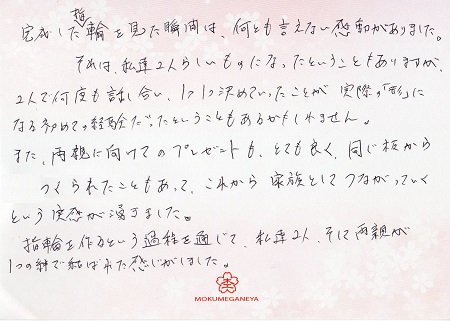 完成した指輪を見た瞬間は、何とも言えない感動がありました。
それは、私達2人らしいものになったということもありますが、
2人で何度も話し合い、1つ1つ決めていったことが実際の「形」に
なる初めての経験だったということもあるかもしれません。
また、両親に向けてのプレゼントも、とても良く、同じ板から
つくられたこともあって、これから家族としてつながっていく
という実感が湧きました。
指輪を作るという過程を通じて、私達2人、そして両親が
1つの絆で結ばれた感じがしました。
MOKUMEGANEYA